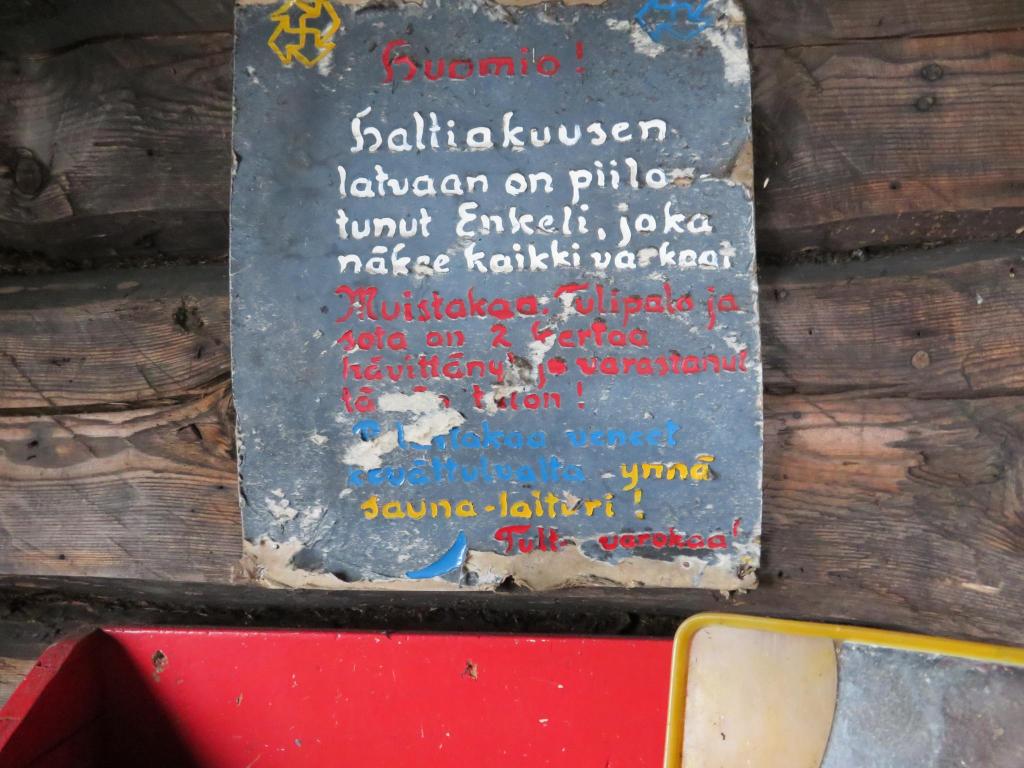 Huomio!
Haltiakuusen
latvaan on piilo-
tunut Enkeli, joka
näkee kaikki varkaat
Muistakaa. Tulipalo ja
sota on 2 kertaa
hävittänyt ja varastanut
talon!
veneet
ynnä
sauna-laituri!
Tult- varokaa!